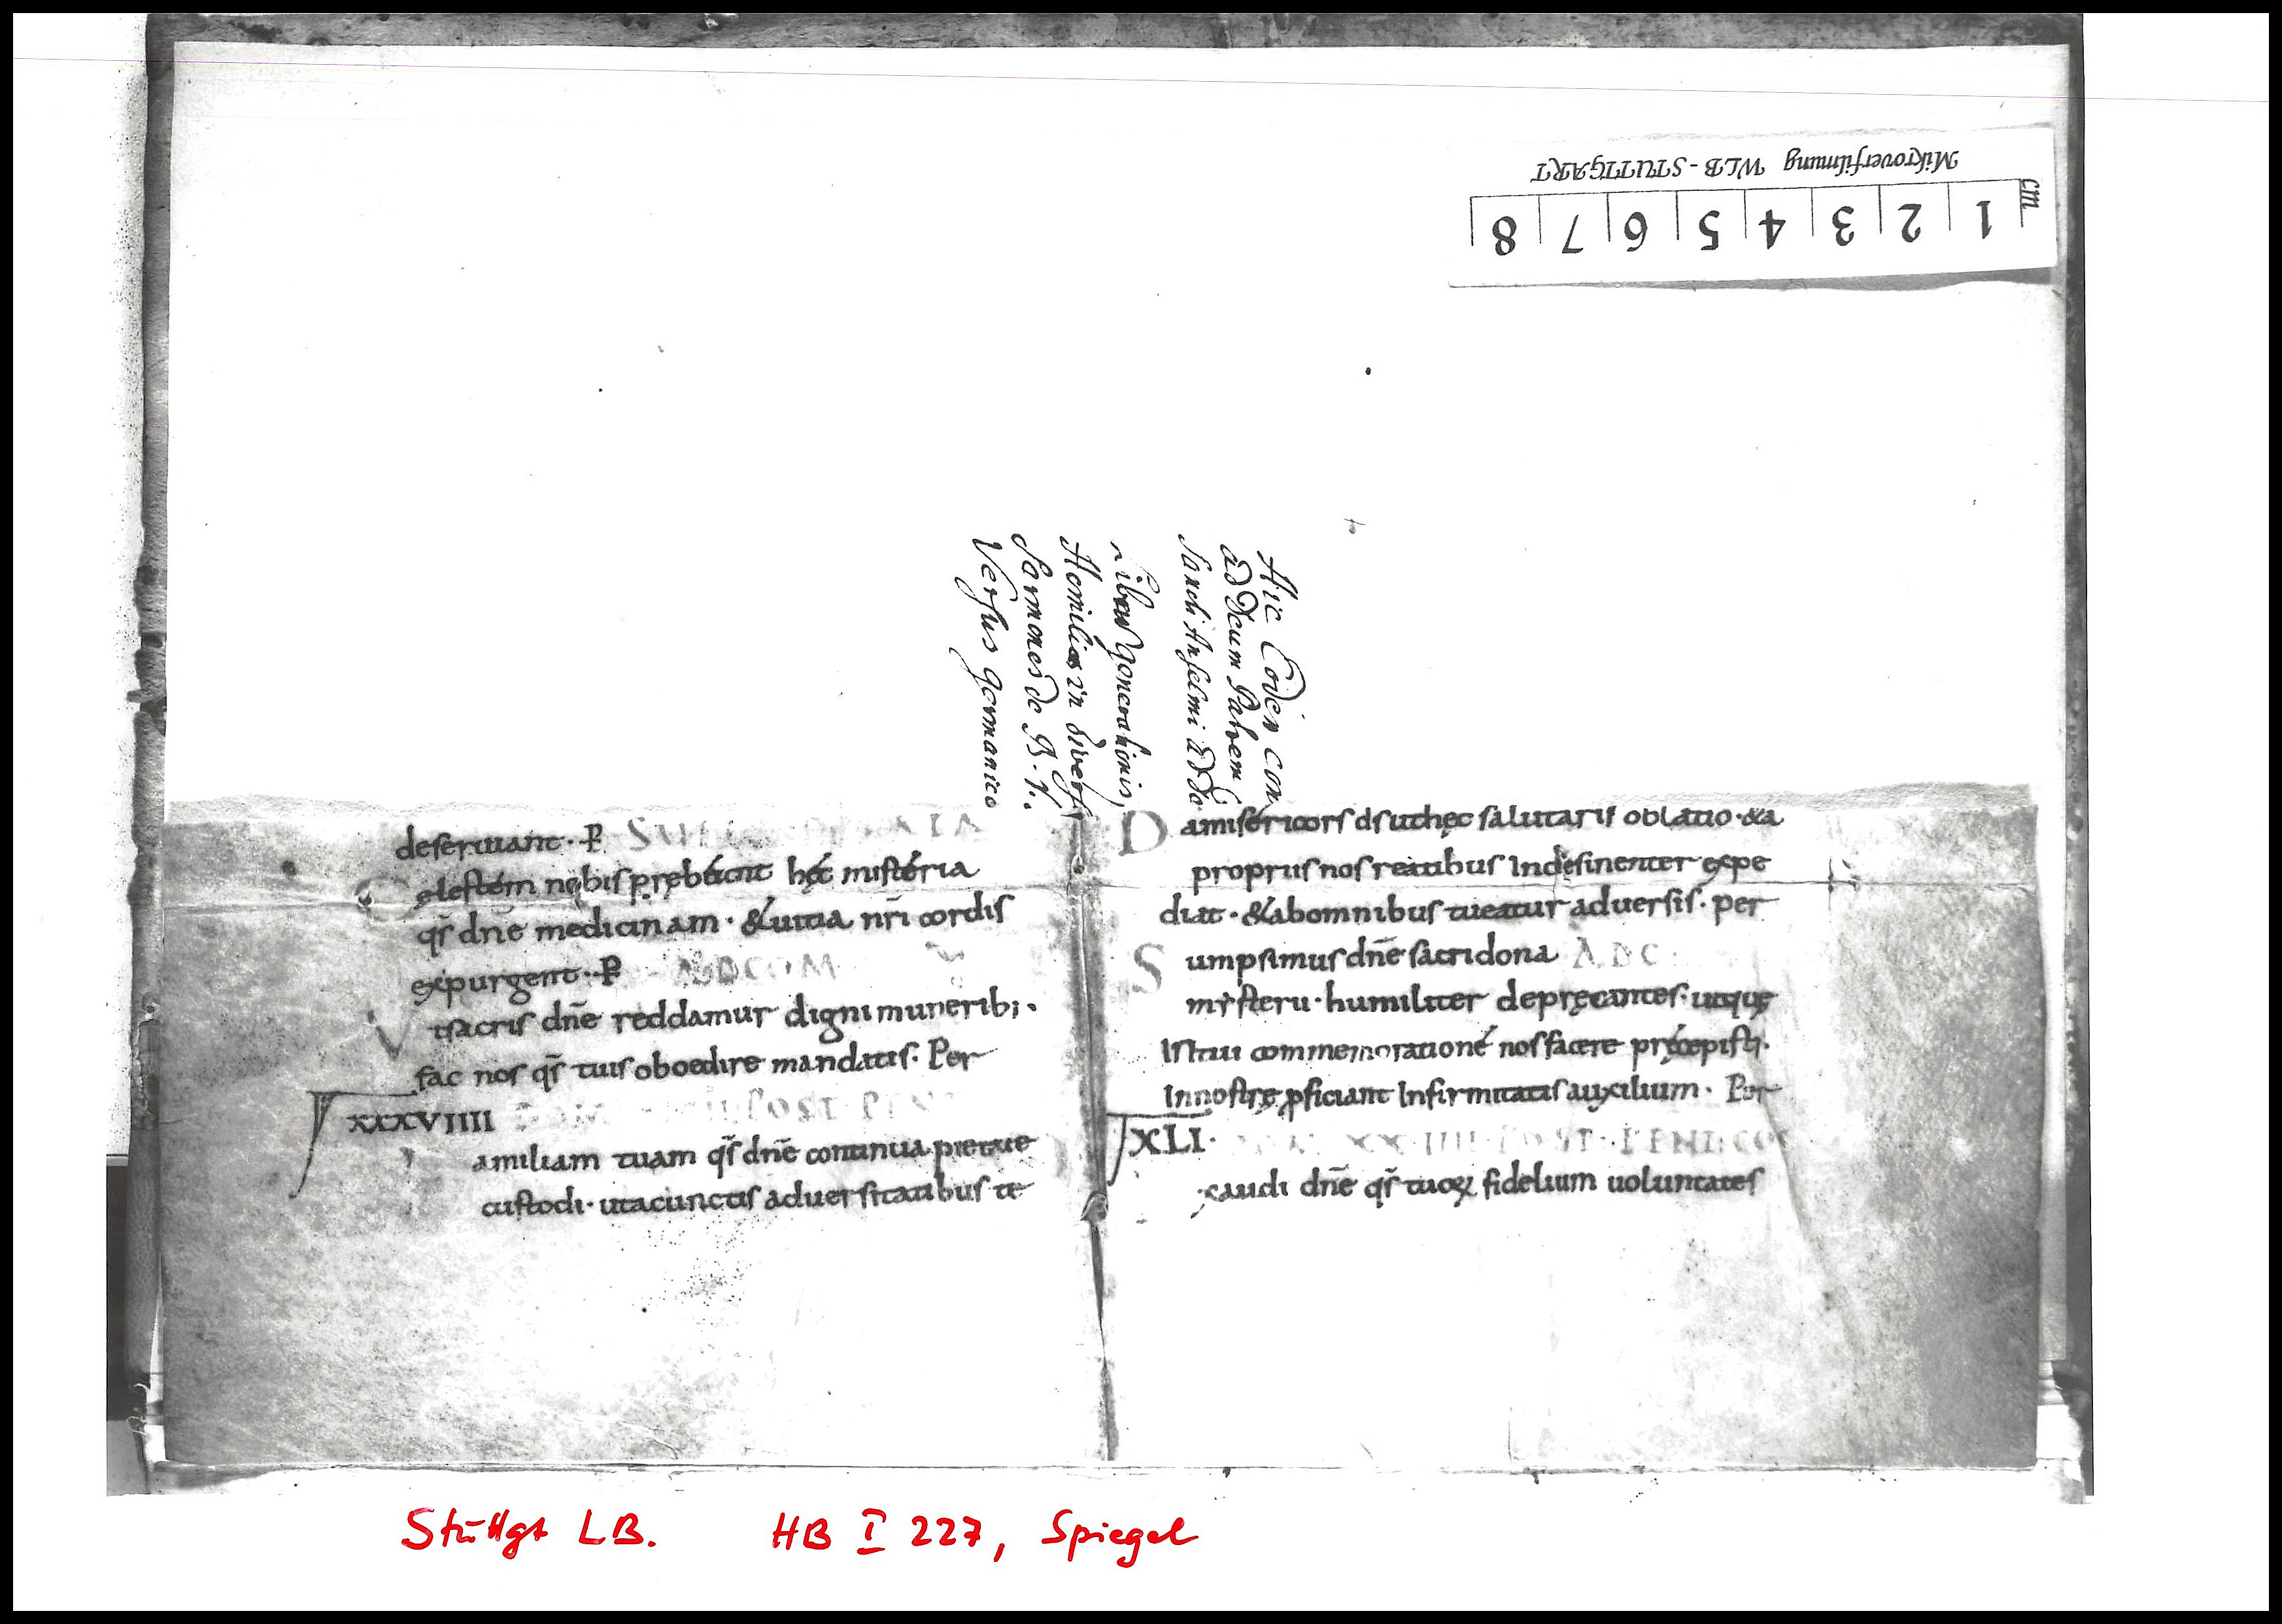 Mikroverfilmung WLB-STUTTGART
cm 1 2 3 4 5 6 7 8
Hic Codex con
ad Deum Patrem
Sancti Anselmi ad
generationis,
Homilias in divers
Sermones de B. V.
Versus germanico
deseruiant · P
Celestem nobis prębeant hęc mistéria
qs̄ dn̄e medicinam · & uitia nr̄i cordis
expurgent · P ADCOM
Vt sacris dn̄e reddamur digni munerib;·
fac nos qs̄ tuis oboedire mandatis. Per
XXXVIIII POST PEN
amiliam tuam qs̄ dn̄e continua pietate
custodi · ut a cunctis aduersitatibus te
Da misericors ds ut hęc salutaris oblatio · & a
propriis nos reatibus Indesinenter expe
diat · & ab omnibus tueatur aduersis · per
Sumpsimus dn̄e sacri dona ADC
mysterii · humiliter depręcantes · ut quę
In tui commemorationé nos facere pręcepisti ·
In nostrę proficiant Infirmitatis auxilium · Per
XLI · XXIIII POST PENTECO
xaudi dn̄e qs̄ tuoꝝ fidelium uoluntates
Stuttgt LB. HB I 227, Spiegel